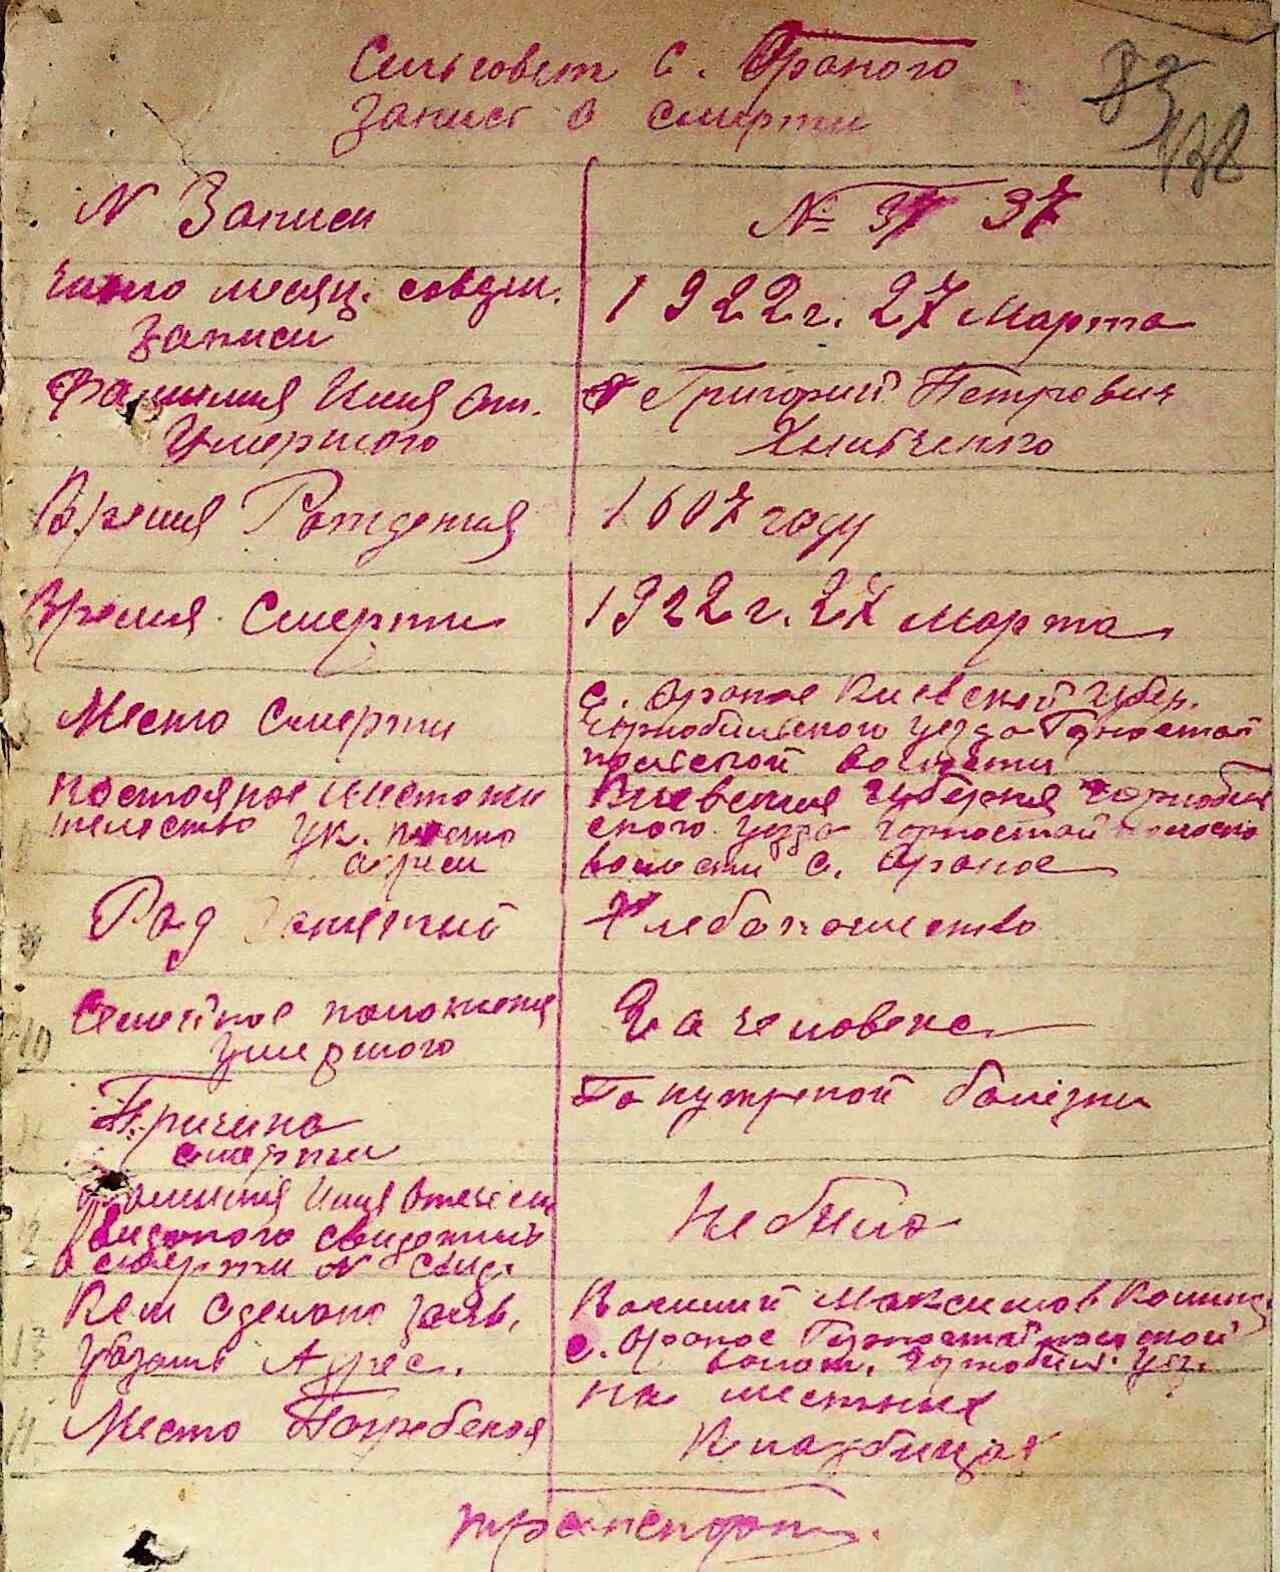 Сельсовет с. Ораного
Запись о смерти
83
138
N Записи
№ 37 37
Число месяц. совдеи.
записи
1922 г. 27 Марта
Фамилия Имя От.
Умершого
Григорий Петрович
Хмиченко
Время Рождения
1607 году
Время Смерти
1922 г. 27 марта
Место Смерти
с. Ораное Киевской губер.
Чорнобильского уезда Горностай
польской волости
Постояное место жи
телство ук. точно
адреси
Киевския губерния Чорнобил
ского уезда Горностай польско
волости с. Ораное
Род Занятий
Хлебопашество
Семейное положения
умершого
2 а человека
Причина
смерти
По нутреной болезни
Фамилия Имя Отечест
видоного свидетель
о смерти N свид.
Не било
Кем сделано заяв.
указать Адрес.
Василий Максимов
с. Ораное Горностайпольской
волост. Чорнобил. уез.
Место Погребения
На местних
Кладбищах
транспорт.
10
12
13
14